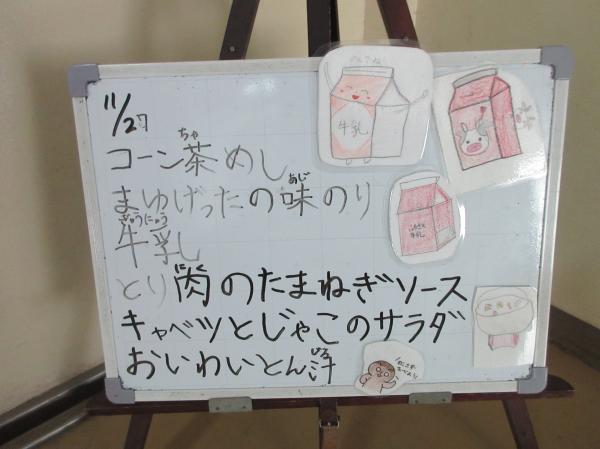 11/27
コーン茶めし
ちゃ
まゆげったの味のり
あじ
牛乳
ぎゅうにゅう
とり肉のたまねぎソース
にく
キャベツとじゃこのサラダ
おいわいとん汁
じる
牛乳
牛乳